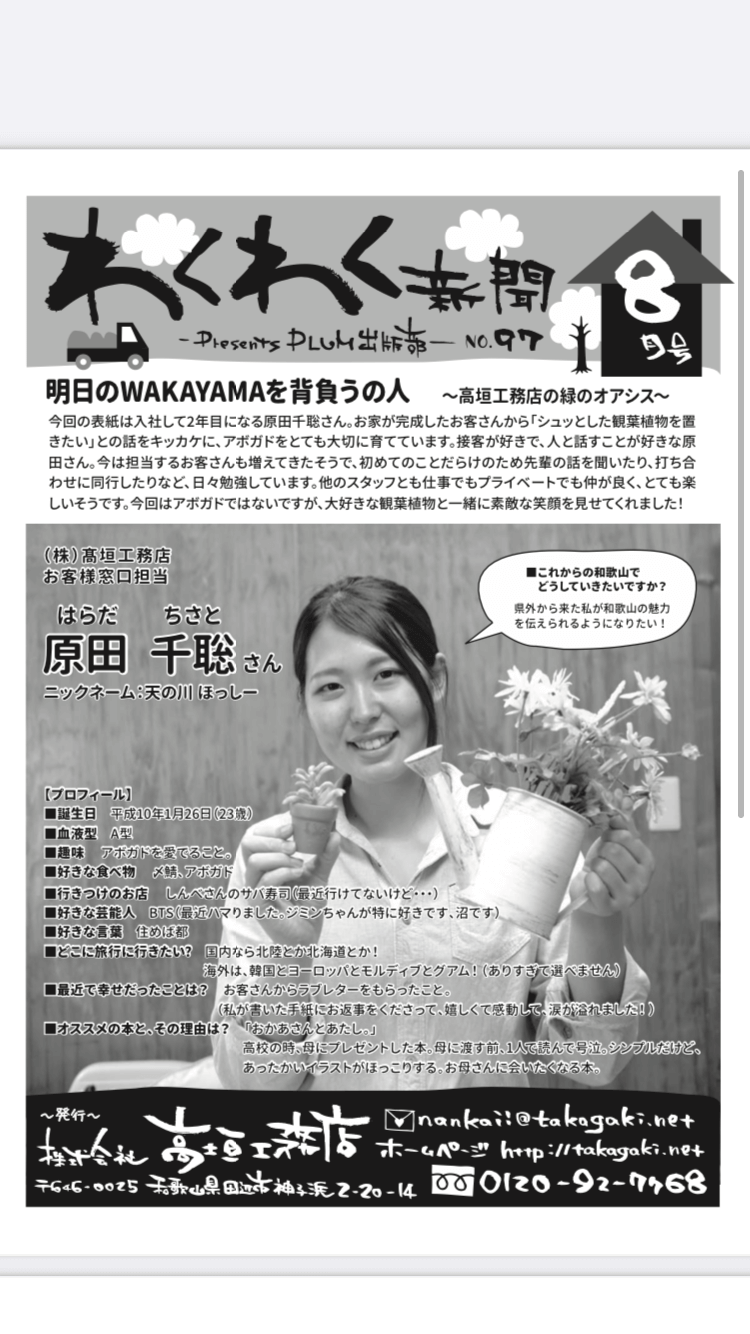 わくわく新聞
8月号
-Presents PLUM出版部- NO.97
明日のWAKAYAMAを背負うの人 〜高垣工務店の緑のオアシス〜
今回の表紙は入社して2年目になる原田千聡さん。お家が完成したお客さんから「シュッとした観葉植物を置
きたい」との話をキッカケに、アボガドをとても大切に育てています。接客が好きで、人と話すことが好きな原
田さん。今は担当するお客さんも増えてきたそうで、初めてのことだらけのため先輩の話を聞いたり、打ち合
わせに同行したりなど、日々勉強しています。他のスタッフとも仕事でもプライベートでも仲が良く、とても楽
しいそうです。今回はアボガドではないですが、大好きな観葉植物と一緒に素敵な笑顔を見せてくれました!
(株)髙垣工務店
お客様窓口担当
はらだ ちさと
原田 千聡さん
ニックネーム:天の川 ほっしー
■これからの和歌山で
どうしていきたいですか?
県外から来た私が和歌山の魅力
を伝えられるようになりたい!
【プロフィール】
■誕生日 平成10年1月26日(23歳)
■血液型 A型
■趣味 アボガドを愛でること。
■好きな食べ物 〆鯖、アボガド
■行きつけのお店 しんべさんのサバ寿司(最近行けてないけど・・・)
■好きな芸能人 BTS(最近ハマりました。ジミンちゃんが特に好きです、沼です)
■好きな言葉 住めば都
■どこに旅行に行きたい? 国内なら北陸とか北海道とか!
海外は、韓国とヨーロッパとモルディブとグアム!(ありすぎて選べません)
■最近で幸せだったことは? お客さんからラブレターをもらったこと。
(私が書いた手紙にお返事をくださって、嬉しくて感動して、涙が溢れました!)
■オススメの本と、その理由は? 「おかあさんとあたし。」
高校の時、母にプレゼントした本。母に渡す前、1人で読んで号泣。シンプルだけど、
あったかいイラストがほっこりする。お母さんに会いたくなる本。
〜発行〜
株式会社 高垣工務店
nankai!@takagaki.net
ホームページ http://takagaki.net
〒646-0025 和歌山県田辺市神子浜2-20-14
0120-92-7768